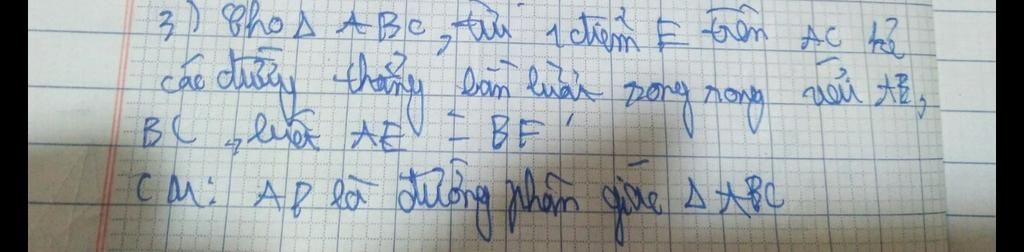 3) Cho Δ ABC, từ 1 điểm E trên AC kẻ
các đường thẳng lần lượt song song với AB,
BC, biết AE = BF
CM: AD là đường phân giác Δ ABC